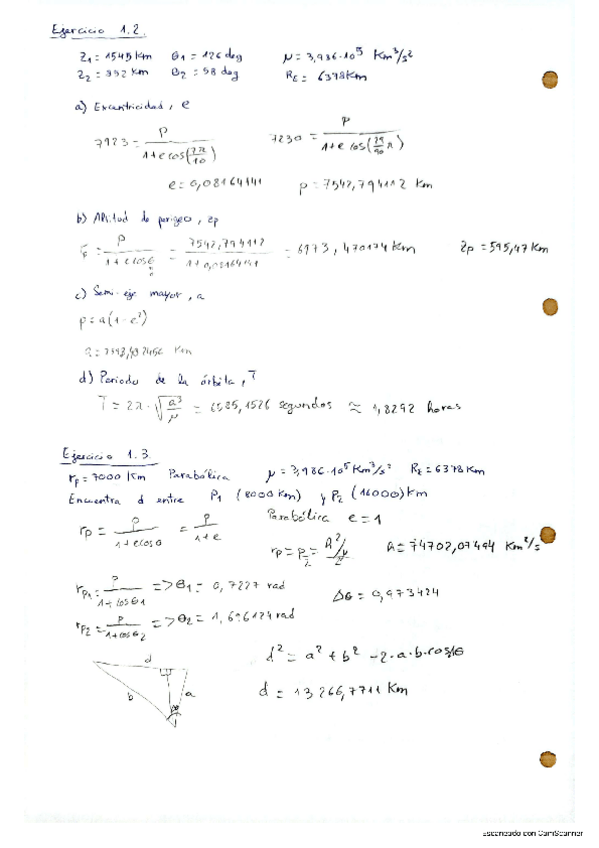 Ejercicio 1.2.
Z1 = 1545 Km θ1 = 126 deg μ = 3,986·10^5 Km^3/s^2
Z2 = 852 Km θ2 = 58 deg RE = 6378 Km
a) Excentricidad, e
7923 = p / (1 + e cos(7π/10)) 7230 = p / (1 + e cos(29/90 π))
e = 0,08164141 p = 7542,794112 Km
b) Altitud de perigeo, zp
= p / (1 + e cosθ) = 7542,794112 / (1 + 0,08164141) = 6973,470174 Km Zp = 595,47 Km
c) Semi-eje mayor, a
p = a(1 - e^2)
d) Periodo de la órbita, T
T = 2π · √(a^3/μ) = 6585,1526 segundos ≈ 1,8292 horas
Ejercicio 1.3.
rp = 7000 Km Parabólica μ = 3,986·10^5 Km^3/s^2 RE = 6378 Km
Encuentra d entre P1 (8000 Km) y P2 (16000) Km
rp = p / (1 + e cosθ) = p / (1 + e) Parabólica e = 1
rp = p/2 = h^2/μ / 2 h = 74702,07494 Km^2/s
rp1 = p / (1 + cosθ1) => θ1 = 0,7227 rad Δθ = 0,973424
rp2 = p / (1 + cosθ2) => θ2 = 1,696124 rad
d^2 = a^2 + b^2 - 2·a·b·cosΔθ
d = 13266,7711 Km
d
b
a
Δθ
Escaneado con CamScanner